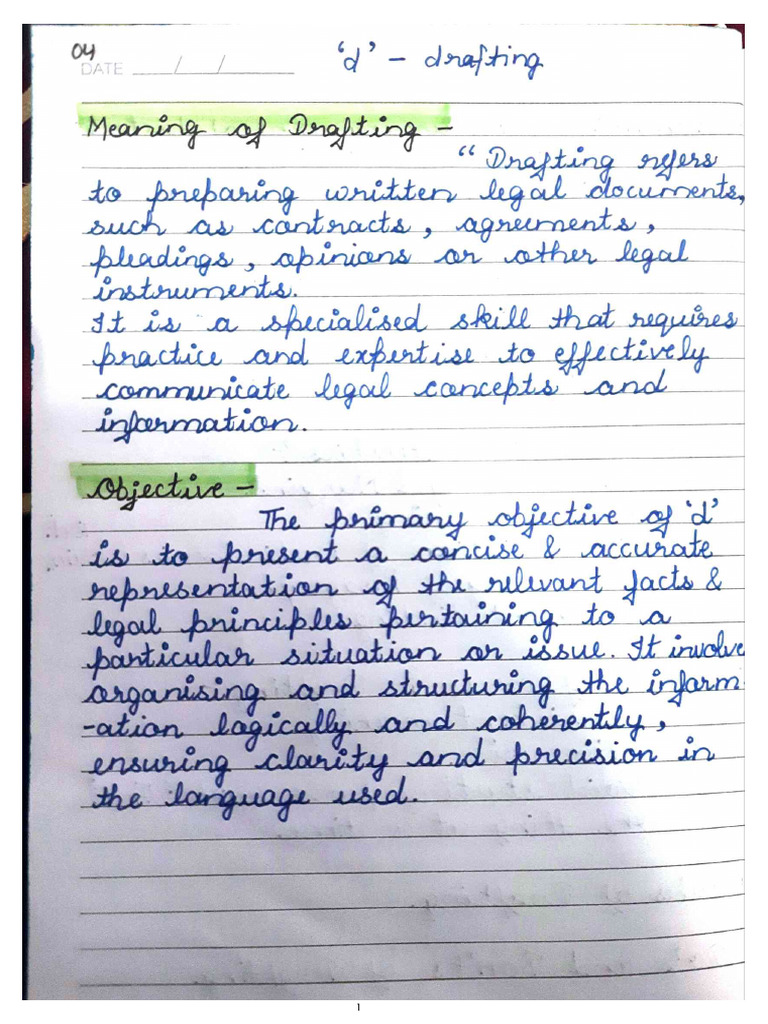 04
DATE ___/___/______
'd' - drafting
Meaning of Drafting -
" Drafting refers
to preparing written legal documents,
such as contracts, agreements,
pleadings, opinions or other legal
instruments.
It is a specialised skill that requires
practice and expertise to effectively
communicate legal concepts and
information.
Objective -
The primary objective of 'd'
is to present a concise & accurate
representation of the relevant facts &
legal principles pertaining to a
particular situation or issue. It involve
organising and structuring the inform
-ation logically and coherently,
ensuring clarity and precision in
the language used.
1